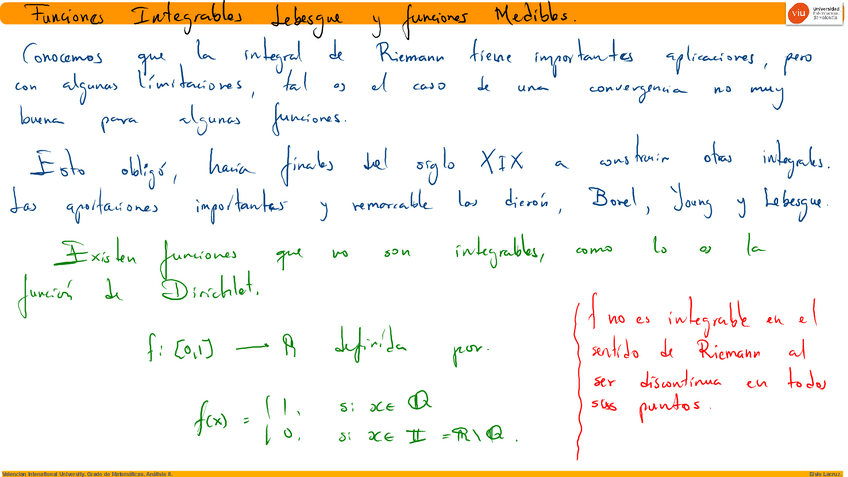 Funciones Integrables Lebesgue y funciones Medibles.
viu Universidad Internacional de Valencia
Conocemos que la integral de Riemann tiene importantes aplicaciones, pero
con algunas limitaciones, tal es el caso de una convergencia no muy
buena para algunas funciones.
Esto obligó, hacia finales del siglo XIX a construir otras integrales.
Las aportaciones importantes y remarcable las dierón, Borel, Young y Lebesgue.
Existen funciones que no son integrables, como lo es la
función de Dirichlet.
f: [0,1] → ℝ definida por.
f(x) = { 1, si x ∈ ℚ
0, si x ∈ 𝕀 = ℝ \ ℚ.
f no es integrable en el
sentido de Riemann al
ser discontinua en todos
sus puntos.
Valencian International University. Grado de Matemáticas. Análisis II.
Elvie Lacruz.